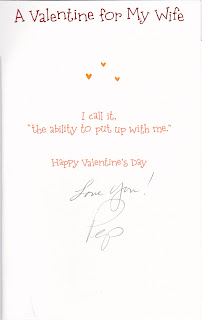 A Valentine for My Wife
I call it,
"the ability to put up with me."
Happy Valentine's Day
Love You!
Pep